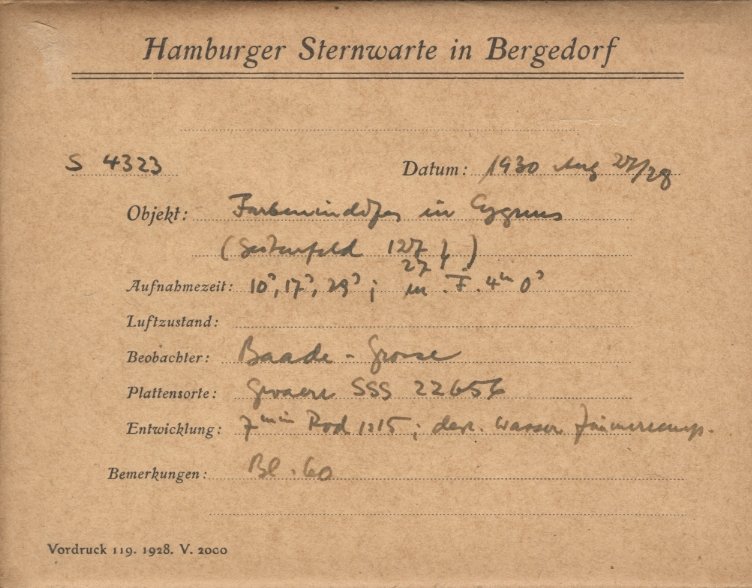 Hamburger Sternwarte in Bergedorf
S 4323 Datum: 1930 Aug 27/28
Objekt: in Cygnus
127
27
Aufnahmezeit: 10ˢ, 17ˢ, 29ˢ; m. F. 4ᵐ 0ˢ
Luftzustand:
Beobachter: Baade - Grosse
Plattensorte: Gevaert SSS 22656
Entwicklung: 7ᵐⁱⁿ Rod 1:15; Wasser Zimmertemp.
Bemerkungen: Bl. 60
Vordruck 119. 1928. V. 2000